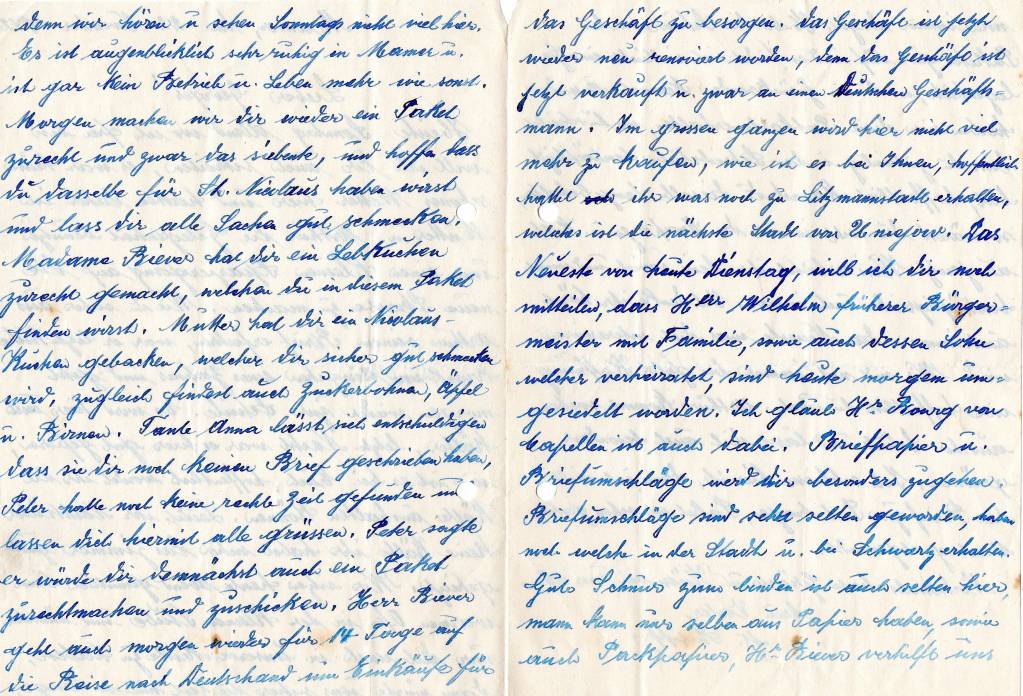 denn wir hören u sehen, Sonntags nicht viel hier.
Es ist augenblicklich sehr ruhig in Mamer u.
ist gar kein Betrieb u. Leben mehr wie sonst.
Morgen machen wir dir wieder ein Paket
zurecht und zwar das siebente, und hoffen dass
du dasselbe für St. Nicolaus haben wirst
und lass dir alle Sachen gut schmecken.
Madame Biever hat dir ein Lebkuchen
zurecht gemacht, welchen du in diesem Paket
finden wirst. Mutter hat dir ein Nicolaus-
Kuchen gebacken, welcher dir sicher gut schmecken
wird, zugleich findest auch Zuckerbohnen, Äpfel
u. Birnen. Tante Anna lässt sich entschuldigen
dass sie dir noch keinen Brief geschrieben haben,
Peter hatte noch keine rechte Zeit gefunden und
lassen dich hiermit alle grüssen. Peter sagte
er würde dir demnächst auch ein Paket
zurechtmachen und zuschicken. Herr Biever
geht auch morgen wieder für 14 Tage auf
die Reise nach Deutschland um Einkäufe für
das Geschäft zu besorgen. das Geschäft ist jetzt
wieder neu renoviert worden, denn das Geschäft ist
jetzt verkauft u. zwar an einen Deutschen Geschäfts=
mann. Im grossen ganzen wird hier nicht viel
mehr zu kaufen, wie ist es bei Ihnen, hoffentlich
hattet ihr was noch zu Litzmannstadt erhalten,
welches ist die nächste Stadt von Uniejow. Das
Neueste von heute Dienstag, will ich dir noch
mitteilen, dass Herr Wilhelm früherer Bürger=
meister mit Familie, sowie auch dessen Sohn
welcher verheiratet, sind heute morgen um=
gesiedelt worden. Ich glaub Hr Bourg von
Capellen ist auch dabei. Briefpapier u.
Briefumschläge wird dir besonders zugehen.
Briefumschläge sind sehr selten geworden, haben
noch welche in der Stadt u. bei Schwartz erhalten.
Gute Schnur zum binden ist auch selten hier,
mann kann nur selben aus Papier haben, sowie
auch Packpapier, Hr Biever verhilft uns